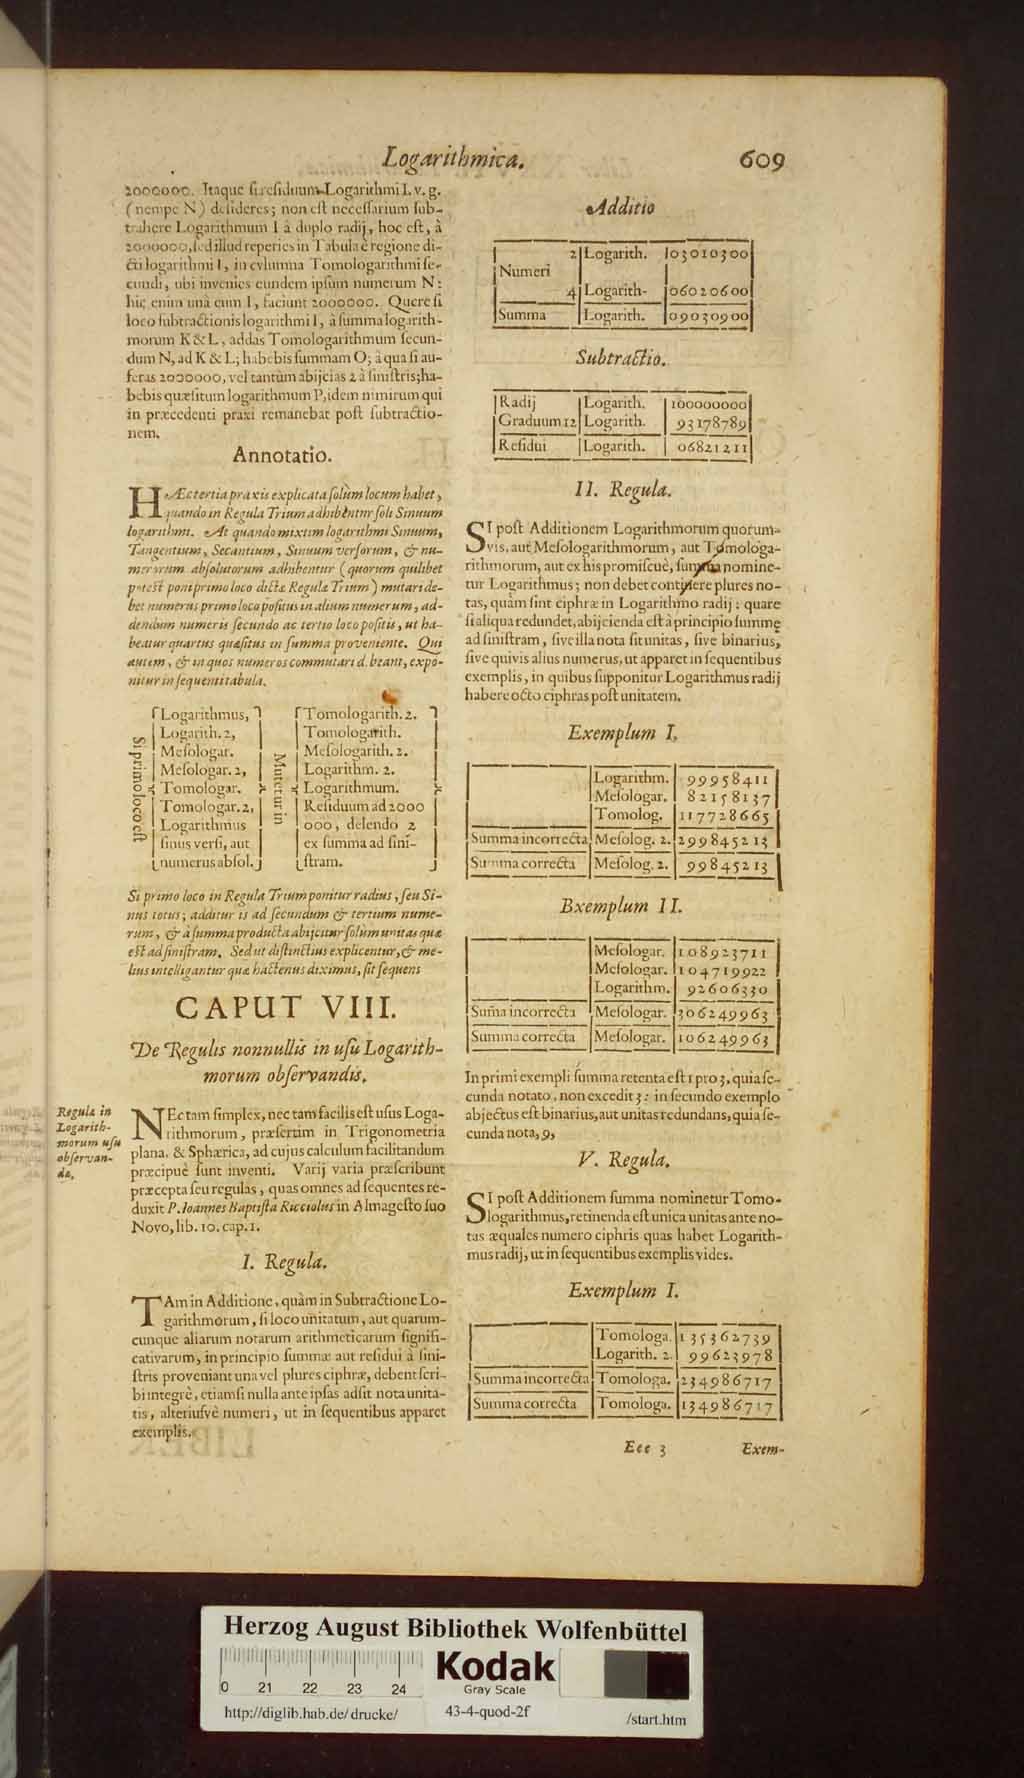 Logarithmica. 609
2000000. Itaque si residuum Logarithmi I. v. g.
(nempe N) desideres; non est necessarium sub-
trahere Logarithmum I à duplo radij, hoc est, à
2000000, sed illud reperies in Tabula è regione di-
cti logarithmi I, in columna Tomologarithmi se-
cundi, ubi invenies eundem ipsum numerum N:
hic enim unà cum I, faciunt 2000000. Quere si
loco subtractionis logarithmi I, à summa logarith-
morum K & L, addas Tomologarithmum secun-
dum N, ad K & L; habebis summam O; à qua si au-
feras 2000000, vel tantùm abijcias 2 à sinistris; ha-
bebis quæsitum logarithmum P, idem nimirum qui
in præcedenti praxi remanebat post subtractio-
nem.
Annotatio.
HÆc tertia praxis explicata solùm locum habet,
quando in Regula Trium adhibentur soli Sinuum
logarithmi. At quando mixtim logarithmi Sinuum,
Tangentium, Secantium, Sinuum versorum, & nu-
merorum absolutorum adhibentur (quorum quilibet
potest poni primo loco dictæ Regulæ Trium) mutari de-
bet numerus primo loco positus in alium numerum, ad-
dendum numeris secundo ac tertio loco positis, ut ha-
beatur quartus quæsitus in summa proveniente. Qui
autem, & in quos numeros commutari debeant, expo-
nitur in sequenti tabula.
Si primo loco est
Logarithmus,
Logarith. 2,
Mesologar.
Mesologar. 2,
Tomologar.
Tomologar. 2,
Logarithmus
sinus versi, aut
numerus absol.
Mutetur in
Tomologarith. 2.
Tomologarith.
Mesologarith. 2.
Logarithm. 2.
Logarithmum.
Residuum ad 2000
000, delendo 2
ex summa ad sini-
stram.
Si primo loco in Regula Trium ponitur radius, seu Si-
nus totus; additur is ad secundum & tertium nume-
rum, & à summa producta abijcitur solùm unitas quæ
est ad sinistram. Sed ut distinctius explicentur, & me-
lius intelligantur quæ hactenus diximus, sit sequens
CAPUT VIII.
De Regulis nonnullis in usu Logarith-
morum observandis.
Regulæ in
Logarith-
morum usu
observan-
dæ.
NEc tam simplex, nec tam facilis est usus Loga-
rithmorum, præsertim in Trigonometria
plana, & Sphærica, ad cujus calculum facilitandum
præcipuè sunt inventi. Varij varia præscribunt
præcepta seu regulas, quas omnes ad sequentes re-
duxit P. Ioannes Baptista Ricciolus in Almagesto suo
Novo, lib. 10. cap. 1.
I. Regula.
TAm in Additione, quàm in Subtractione Lo-
garithmorum, si loco unitatum, aut quarum-
cunque aliarum notarum arithmeticarum signifi-
cativarum, in principio summæ aut residui à sini-
stris proveniant una vel plures ciphræ, debent scri-
bi integrè, etiamsi nulla ante ipsas adsit nota unita-
tis, alteriusvè numeri, ut in sequentibus apparet
exemplis.
Additio
2 Logarith. 03010300
Numeri
4 Logarith- 06020600
Summa Logarith. 09030900
Subtractio.
Radij Logarith. 100000000
Graduum 12 Logarith. 93178789
Residui Logarith. 06821211
II. Regula.
SI post Additionem Logarithmorum quorum-
vis, aut Mesologarithmorum, aut Tomologa-
rithmorum, aut ex his promiscuè, summa nomine-
tur Logarithmus; non debet continere plures no-
tas, quàm sint ciphræ in Logarithmo radij: quare
si aliqua redundet, abijcienda est à principio summę
ad sinistram, sive illa nota sit unitas, sive binarius,
sive quivis alius numerus, ut apparet in sequentibus
exemplis, in quibus supponitur Logarithmus radij
habere octo ciphras post unitatem.
Exemplum I.
Logarithm. 99958411
Mesologar. 82158137
Tomolog. 117728665
Summa incorrecta Mesolog. 2. 299845213
Summa correcta Mesolog. 2. 99845213
Bxemplum II.
Mesologar. 108923711
Mesologar. 104719922
Logarithm. 92606330
Sum̃a incorrecta Mesologar. 306249963
Summa correcta Mesologar. 106249963
In primi exempli summa retenta est 1 pro 3, quia se-
cunda notato, non excedit 3: in secundo exemplo
abjectus est binarius, aut unitas redundans, quia se-
cunda nota, 9,
V. Regula.
SI post Additionem summa nominetur Tomo-
logarithmus, retinenda est unica unitas ante no-
tas æquales numero ciphris quas habet Logarith-
mus radij, ut in sequentibus exemplis vides.
Exemplum I.
Tomologa. 135362739
Logarith. 2. 99623978
Summa incorrecta Tomologa. 234986717
Summa correcta Tomologa. 134986717
Eee 3 Exem-
Herzog August Bibliothek Wolfenbüttel
Kodak
Gray Scale
0 21 22 23 24
http://diglib.hab.de/drucke/ 43-4-quod-2f /start.htm